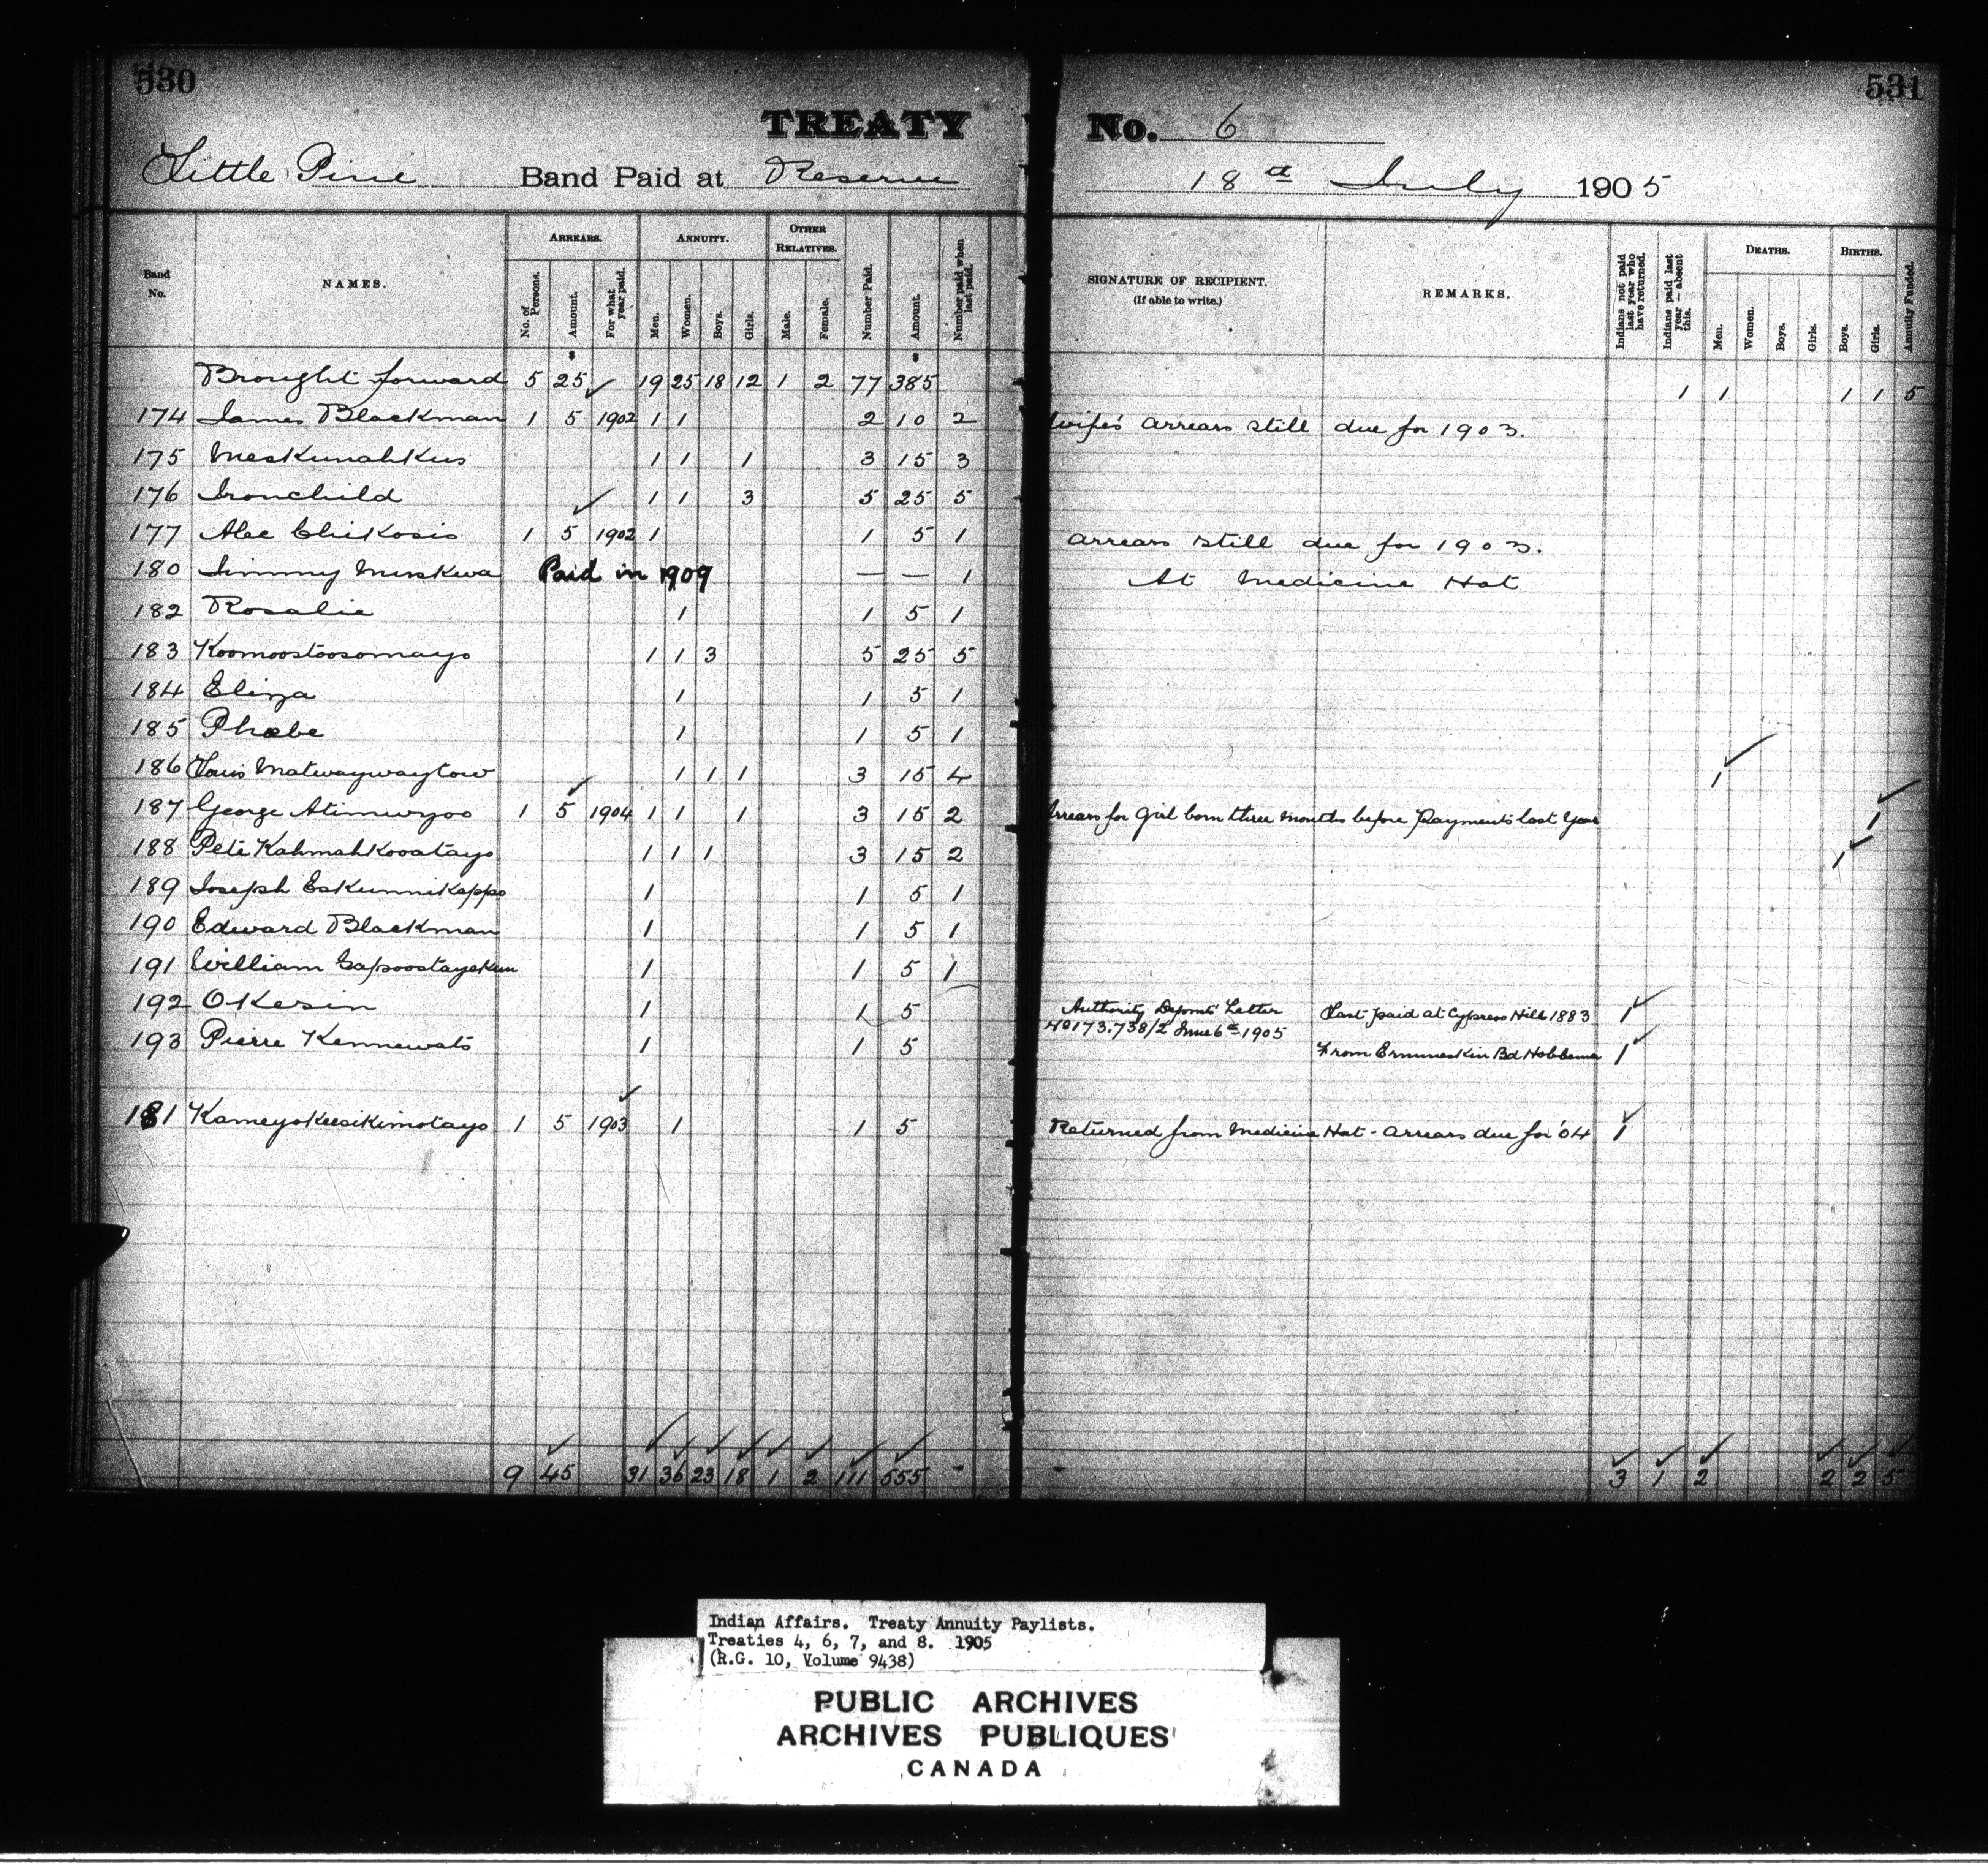 530
531
TREATY No. 6
Little Pine Band Paid at Reserve 18th July 1905
Band No. NAMES. ARREARS. No. of Persons. Amount. For what year paid. ANNUITY. Men. Women. Boys. Girls. OTHER RELATIVES. Male. Female. Number Paid. Amount. Number paid when last paid. SIGNATURE OF RECIPIENT. (If able to write.) REMARKS. Indians not paid last year who have returned. Indians paid last year — absent this. DEATHS. Men. Women. Boys. Girls. BIRTHS. Boys. Girls. Annuity Funded.
Brought forward 5 25 19 25 18 12 1 2 77 385 1 1 1 1 5
174 James Blackman 1 5 1902 1 1 2 10 2 Wife's arrears still due for 1903.
175 Meskunahkus 1 1 1 3 15 3
176 Ironchild 1 1 3 5 25 5
177 Alec Chikosis 1 5 1902 1 1 5 1 Arrears still due for 1903.
180 Jimmy Muskwa Paid in 1909 — — 1 At Medicine Hat
182 Rosalie 1 1 5 1
183 Koomoostoosomayo 1 1 3 5 25 5
184 Eliza 1 1 5 1
185 Phœbe 1 1 5 1
186 Louis Matwaywaytow 1 1 1 3 15 4 1
187 George Atimwyoo 1 5 1904 1 1 1 3 15 2 Arrears for girl born three months before payments last year 1
188 Pete Kahmahkooatayo 1 1 1 3 15 2 1
189 Joseph Eskunnikappo 1 1 5 1
190 Edward Blackman 1 1 5 1
191 William Sapoostayekun 1 1 5 1
192 Okesin 1 1 5 Authority Depmt Letter Last paid at Cypress Hills 1883 1
No 173.738/2 June 6th 1905
193 Pierre Kennewats 1 1 5 From Ermineskin Bd Hobbema 1
181 Kameyokeesikimotayo 1 5 1903 1 1 5 Returned from Medicine Hat - arrears due for '04 1
9 45 31 36 23 18 1 2 111 555 3 1 2 2 2 5
Indian Affairs. Treaty Annuity Paylists.
Treaties 4, 6, 7, and 8. 1905
(R.G. 10, Volume 9438)
PUBLIC ARCHIVES
ARCHIVES PUBLIQUES
CANADA